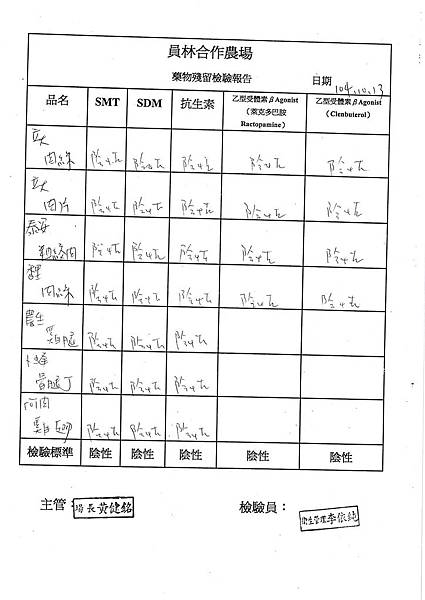 員林合作農場
藥物殘留檢驗報告
日期 104.10.13
品名 SMT SDM 抗生素 乙型受體素βAgonist (萊克多巴胺 Ractopamine) 乙型受體素βAgonist (Clenbuterol)
立大
肉絲 陰性 陰性 陰性 陰性 陰性
立大
肉片 陰性 陰性 陰性 陰性 陰性
泰安
粗絲肉 陰性 陰性 陰性 陰性 陰性
肉絲 陰性 陰性 陰性 陰性 陰性
雞腿 陰性 陰性 陰性
骨腿丁 陰性 陰性 陰性
陰性 陰性 陰性
檢驗標準 陰性 陰性 陰性 陰性 陰性
主管: 場長黃健銘 檢驗員: 衛生管理李依純